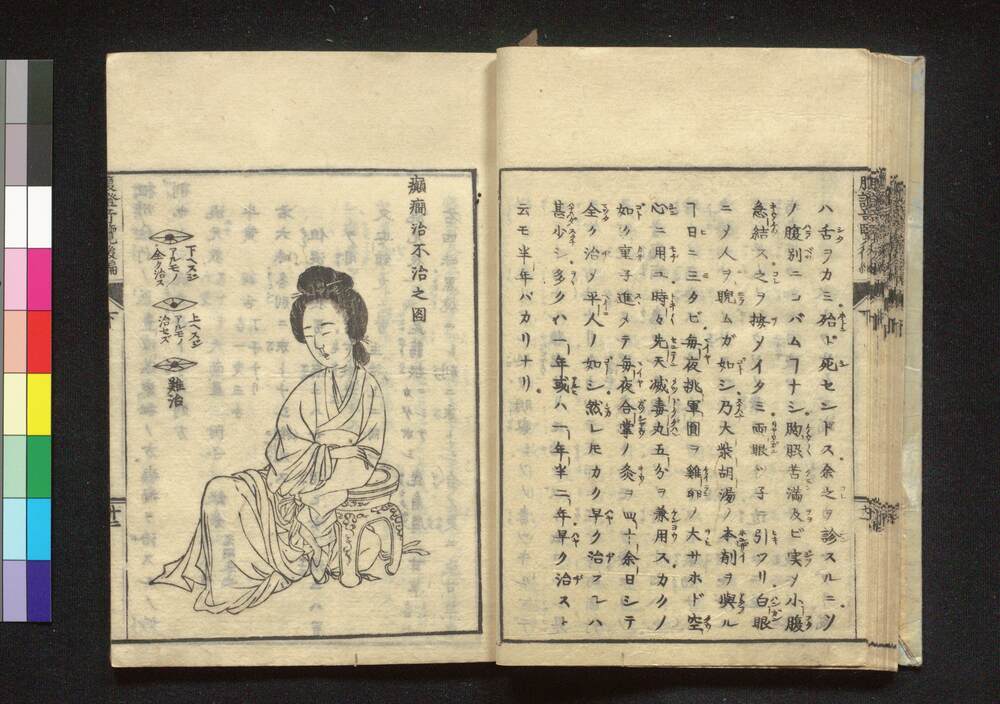 ハ舌ヲカミ殆ド死セントス余之ヲ診スルニソ
ノ腹別ニコバムヿナシ胸脇苦満及ビ実〆小腹
急結ス之ヲ按〆イタミ両眼ド子引ツリ白眼
ニ〆人ヲ睨ムガ如シ乃大柴胡湯ノ本剤ヲ與ル
ヿ日ニ三タビ毎夜桃軍圓ヲ雞卵ノ大サホド空
心ニ用ユ時々先天滅毒丸五分ヲ兼用スカクノ
如ク童子進メテ毎夜合掌ノ灸ヲ四十余日シテ
全ク治〆平人ノ如シ然レ𪜈カク早ク治スルハ
甚少シ多クハ一年或ハ一年半二年早ク治スト
云モ半年バカリナリ
癲癇治不治之圖
下ヘスジ
アルモノ
全ク治ス
上ヘスジ
アルモノ
治セズ
難治